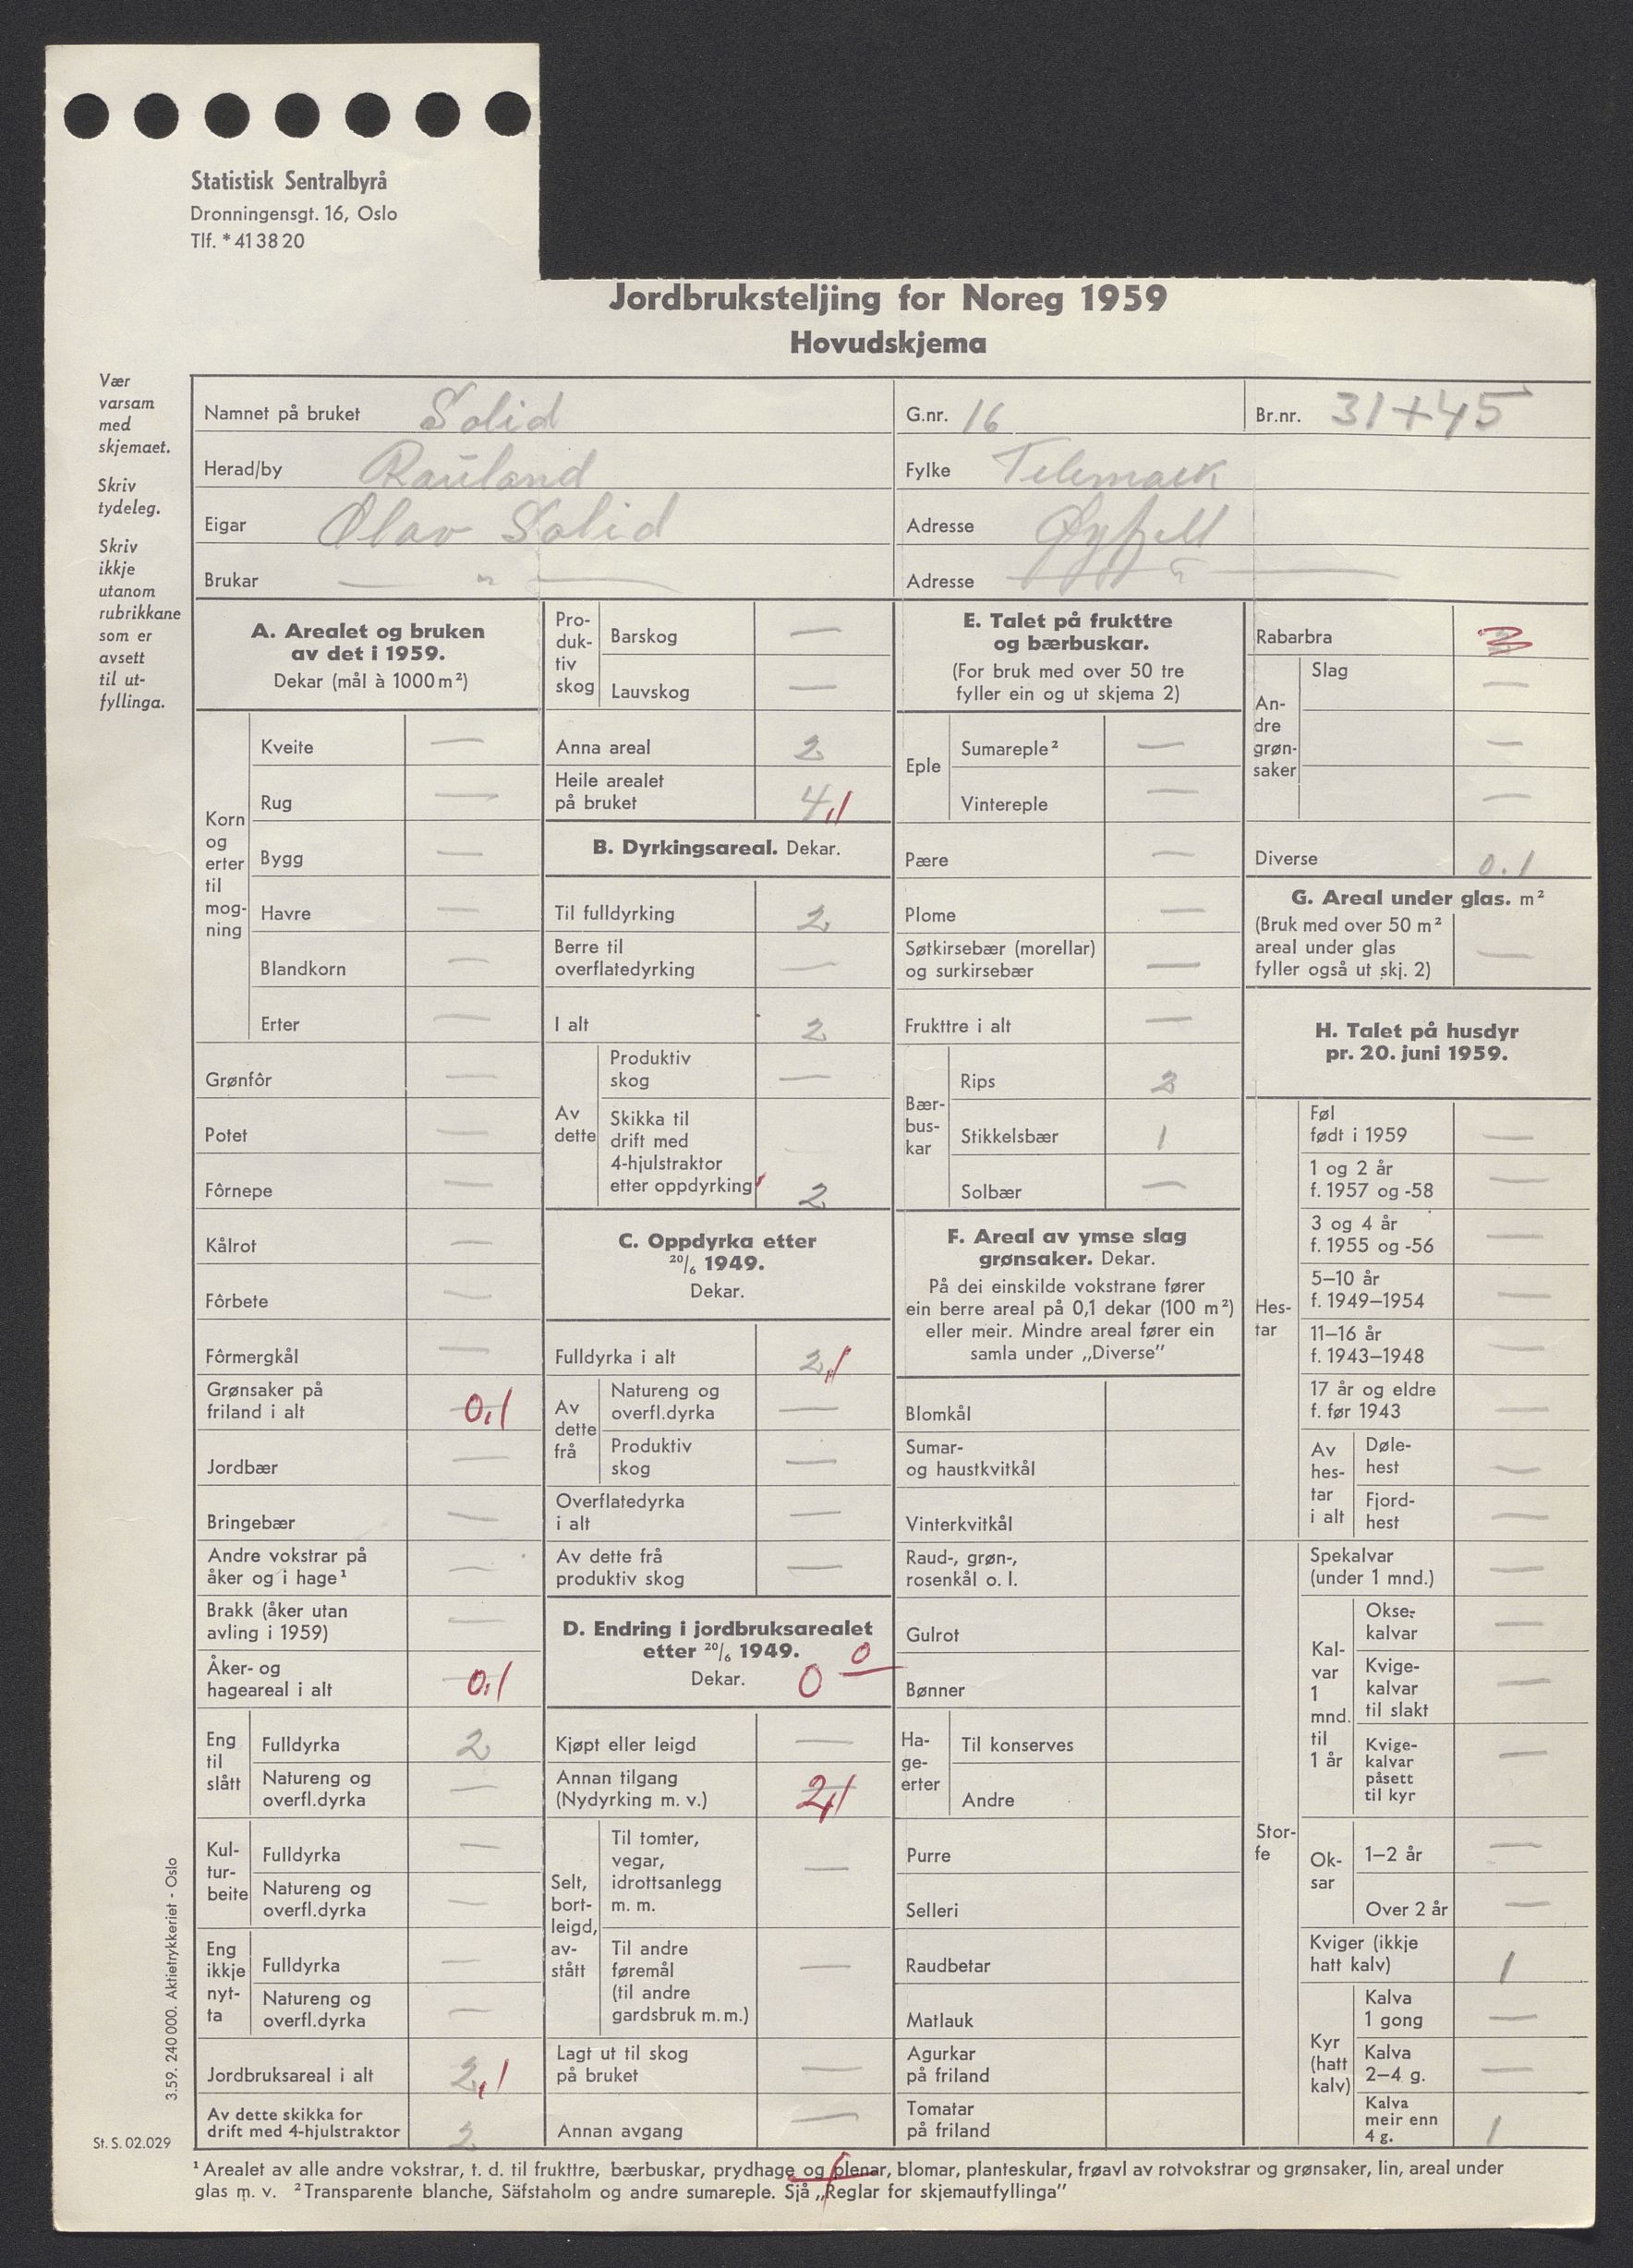 Statistisk Sentralbyrå
Dronningensgt. 16, Oslo
Tlf. * 41 38 20
Jordbruksteljing for Noreg 1959
Hovudskjema
Vær
varsam
med
skjemaet.
Skriv
tydeleg.
Skriv
ikkje
utanom
rubrikkane
som er
avsett
til ut-
fyllinga.
Namnet på bruket Solid
G.nr. 16
Br.nr. 31+45
Herad/by Rauland
Fylke Telemark
Eigar Olav Solid
Adresse Øyfjell
Brukar — " —
Adresse — " —
A. Arealet og bruken
av det i 1959.
Dekar (mål à 1000 m²)
Korn
og
erter
til
mog-
ning
Kveite —
Rug —
Bygg —
Havre —
Blandkorn —
Erter —
Grønfôr —
Potet —
Fôrnepe —
Kålrot —
Fôrbete —
Fôrmergkål —
Grønsaker på
friland i alt 0,1
Jordbær —
Bringebær —
Andre vokstrar på
åker og i hage¹ —
Brakk (åker utan
avling i 1959) —
Åker- og
hageareal i alt 0,1
Eng
til
slått
Fulldyrka 2
Natureng og
overfl.dyrka —
Kul-
tur-
beite
Fulldyrka —
Natureng og
overfl.dyrka —
Eng
ikkje
nyt-
ta
Fulldyrka —
Natureng og
overfl.dyrka —
Jordbruksareal i alt 2,1
Av dette skikka for
drift med 4-hjulstraktor 2
Pro-
duk-
tiv
skog
Barskog —
Lauvskog —
Anna areal 2
Heile arealet
på bruket 4,1
B. Dyrkingsareal. Dekar.
Til fulldyrking 2
Berre til
overflatedyrking —
I alt 2
Av
dette
Produktiv
skog —
Skikka til
drift med
4-hjulstraktor
etter oppdyrking 2
C. Oppdyrka etter
20/6 1949.
Dekar.
Fulldyrka i alt 2,1
Av
dette
frå
Natureng og
overfl.dyrka —
Produktiv
skog —
Overflatedyrka
i alt —
Av dette frå
produktiv skog —
D. Endring i jordbruksarealet
etter 20/6 1949. 0
Dekar. 0
Kjøpt eller leigd —
Annan tilgang
(Nydyrking m. v.) 2,1
Selt,
bort-
leigd,
av-
stått
Til tomter,
vegar,
idrottsanlegg
m. m. —
Til andre
føremål
(til andre
gardsbruk m. m.) —
Lagt ut til skog
på bruket —
Annan avgang —
E. Talet på frukttre
og bærbuskar.
(For bruk med over 50 tre
fyller ein og ut skjema 2)
Eple
Sumareple² —
Vintereple —
Pære —
Plome —
Søtkirsebær (morellar)
og surkirsebær —
Frukttre i alt —
Bær-
bus-
kar
Rips 3
Stikkelsbær 1
Solbær —
F. Areal av ymse slag
grønsaker. Dekar.
På dei einskilde vokstrane fører
ein berre areal på 0,1 dekar (100 m²)
eller meir. Mindre areal fører ein
samla under „Diverse”
Blomkål
Sumar-
og haustkvitkål
Vinterkvitkål
Raud-, grøn-,
rosenkål o. l.
Gulrot
Bønner
Ha-
ge-
erter
Til konserves
Andre
Purre
Selleri
Raudbetar
Matlauk
Agurkar
på friland
Tomatar
på friland
Rabarbra
An-
dre
grøn-
saker
Slag —
—
—
Diverse 0.1
G. Areal under glas. m²
(Bruk med over 50 m²
areal under glas
fyller også ut skj. 2) —
H. Talet på husdyr
pr. 20. juni 1959.
Hes-
tar
Føl
født i 1959 —
1 og 2 år
f. 1957 og -58 —
3 og 4 år
f. 1955 og -56 —
5–10 år
f. 1949–1954 —
11–16 år
f. 1943–1948 —
17 år og eldre
f. før 1943 —
Av
hes-
tar
i alt
Døle-
hest —
Fjord-
hest —
Stor-
fe
Spekalvar
(under 1 mnd.) —
Kal-
var
1
mnd.
til
1 år
Okse-
kalvar —
Kvige-
kalvar
til slakt —
Kvige-
kalvar
påsett
til kyr —
Ok-
sar
1–2 år —
Over 2 år —
Kviger (ikkje
hatt kalv) 1
Kyr
(hatt
kalv)
Kalva
1 gong —
Kalva
2–4 g. —
Kalva
meir enn
4 g. 1
3.59. 240 000. Aktietrykkeriet - Oslo
St. S. 02.029
¹ Arealet av alle andre vokstrar, t. d. til frukttre, bærbuskar, prydhage og plenar, blomar, planteskular, frøavl av rotvokstrar og grønsaker, lin, areal under
glas m. v. ² Transparente blanche, Säfstaholm og andre sumareple. Sjå „Reglar for skjemautfyllinga”